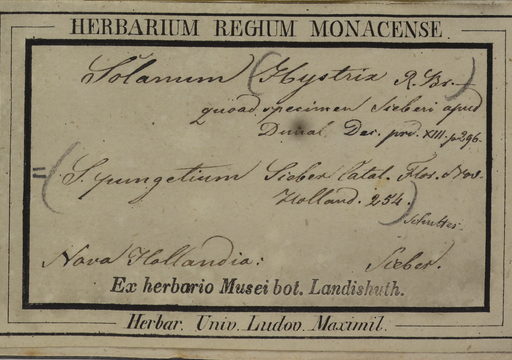 HERBARIUM REGIUM MONACENSE
Solanum (Hystrix R. Br.)
quoad specimen Sieberi apud
Dunal. Dec. prd. XIII. p 296.
= (S. pungetium Sieber Catal. Flor. Nov.
Holland. 254.)
Nova Hollandia: Sieber.
Ex herbario Musei bot. Landishuth.
Herbar. Univ. Ludov. Maximil.